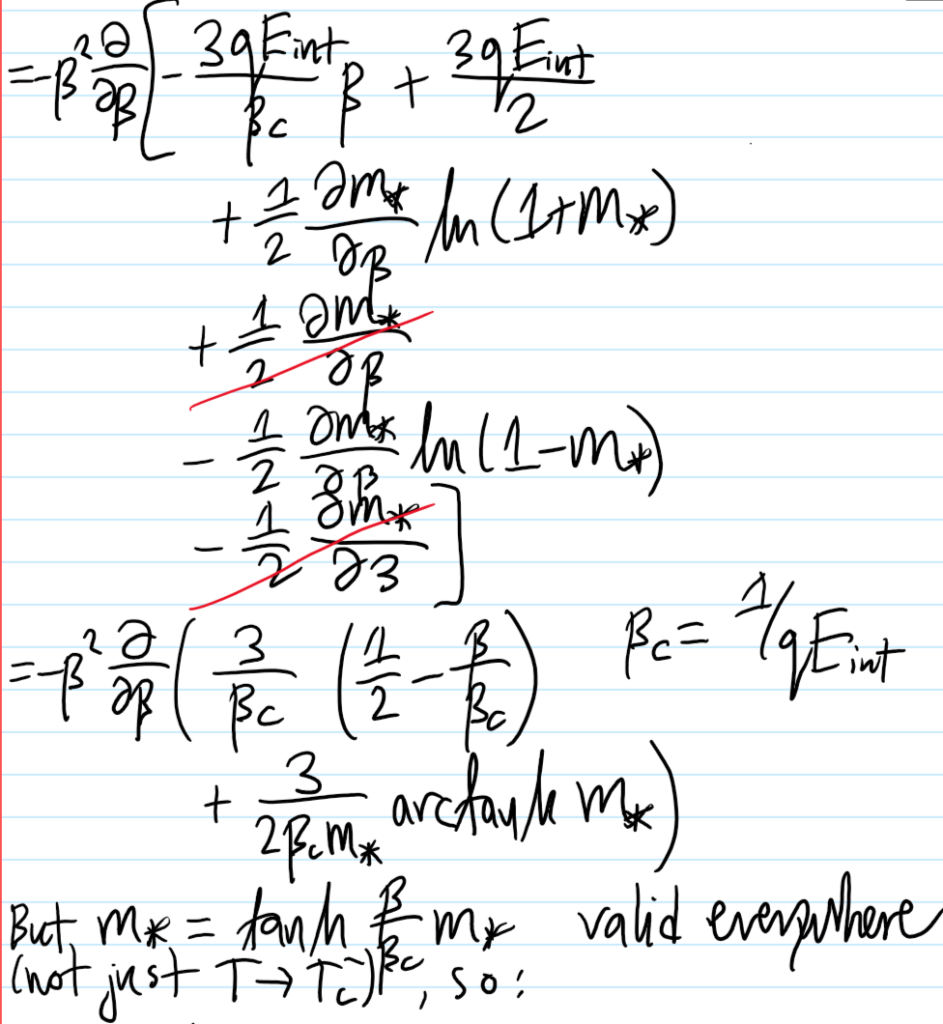 =-β² ∂/∂β [ - 3qE_int/β_c β + 3qE_int/2
+ 1/2 ∂m_*/∂β ln(1+m_*)
+ 1/2 ∂m_*/∂β
- 1/2 ∂m_*/∂β ln(1-m_*)
- 1/2 ∂m_*/∂3 ]
=-β² ∂/∂β ( 3/β_c (1/2 - β/β_c) β_c = 1/qE_int
+ 3/2β_c m_* arctanh m_* )
But, m_* = tanh β/β_c m_* valid everywhere
(not just T → T_c^-), so: